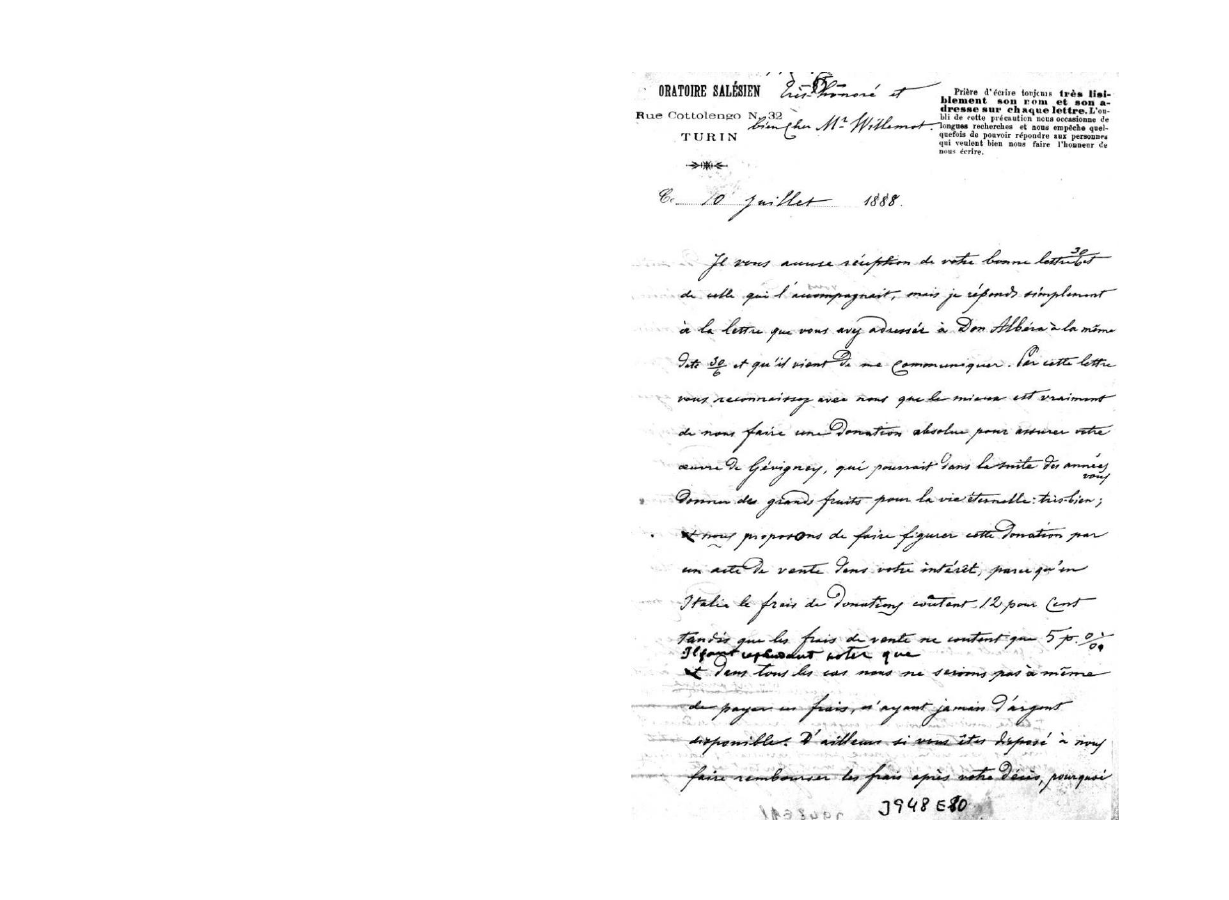 ORATOIRE SALÉSIEN
Rue Cottolengo N. 32
TURIN
Très honoré et
bien cher Mr Willemot.
Prière d'écrire toujours très lisi-
blement son nom et son a-
dresse sur chaque lettre. L'ou-
bli de cette précaution nous occasionne de
longues recherches et nous empêche quel-
quefois de pouvoir répondre aux personnes
qui veulent bien nous faire l'honneur de
nous écrire.
10 Juillet 1888.
Je vous accuse réception de votre bonne lettre 30/6 et
de celle qui l'accompagnait, mais je réponds simplement
à la lettre que vous avez adressée à Don Albéra à la même
date 30/6 et qu'il vient de me communiquer. Par cette lettre
vous reconnaissez avec nous que le mieux est vraiment
de nous faire une Donation absolue pour assurer votre
œuvre de Gévigney, qui pourrait dans la suite des années
vous
donner des grands fruits pour la vie éternelle: très-bien;
et nous proposons de faire figurer cette Donation par
un acte de vente dans votre intérêt, parce qu'en
Italie le frais de Donations coûtent 12 pour Cent
tandis que les frais de vente ne coutent que 5 p. 0/00
Il faut cependant noter que
et dans tous les cas nous ne serions pas à même
de payer ces frais, n'ayant jamais d'argent
disponible. D'ailleurs si vous êtes disposé à nous
faire rembourser les frais après votre décès, pourquoi
3948 E80